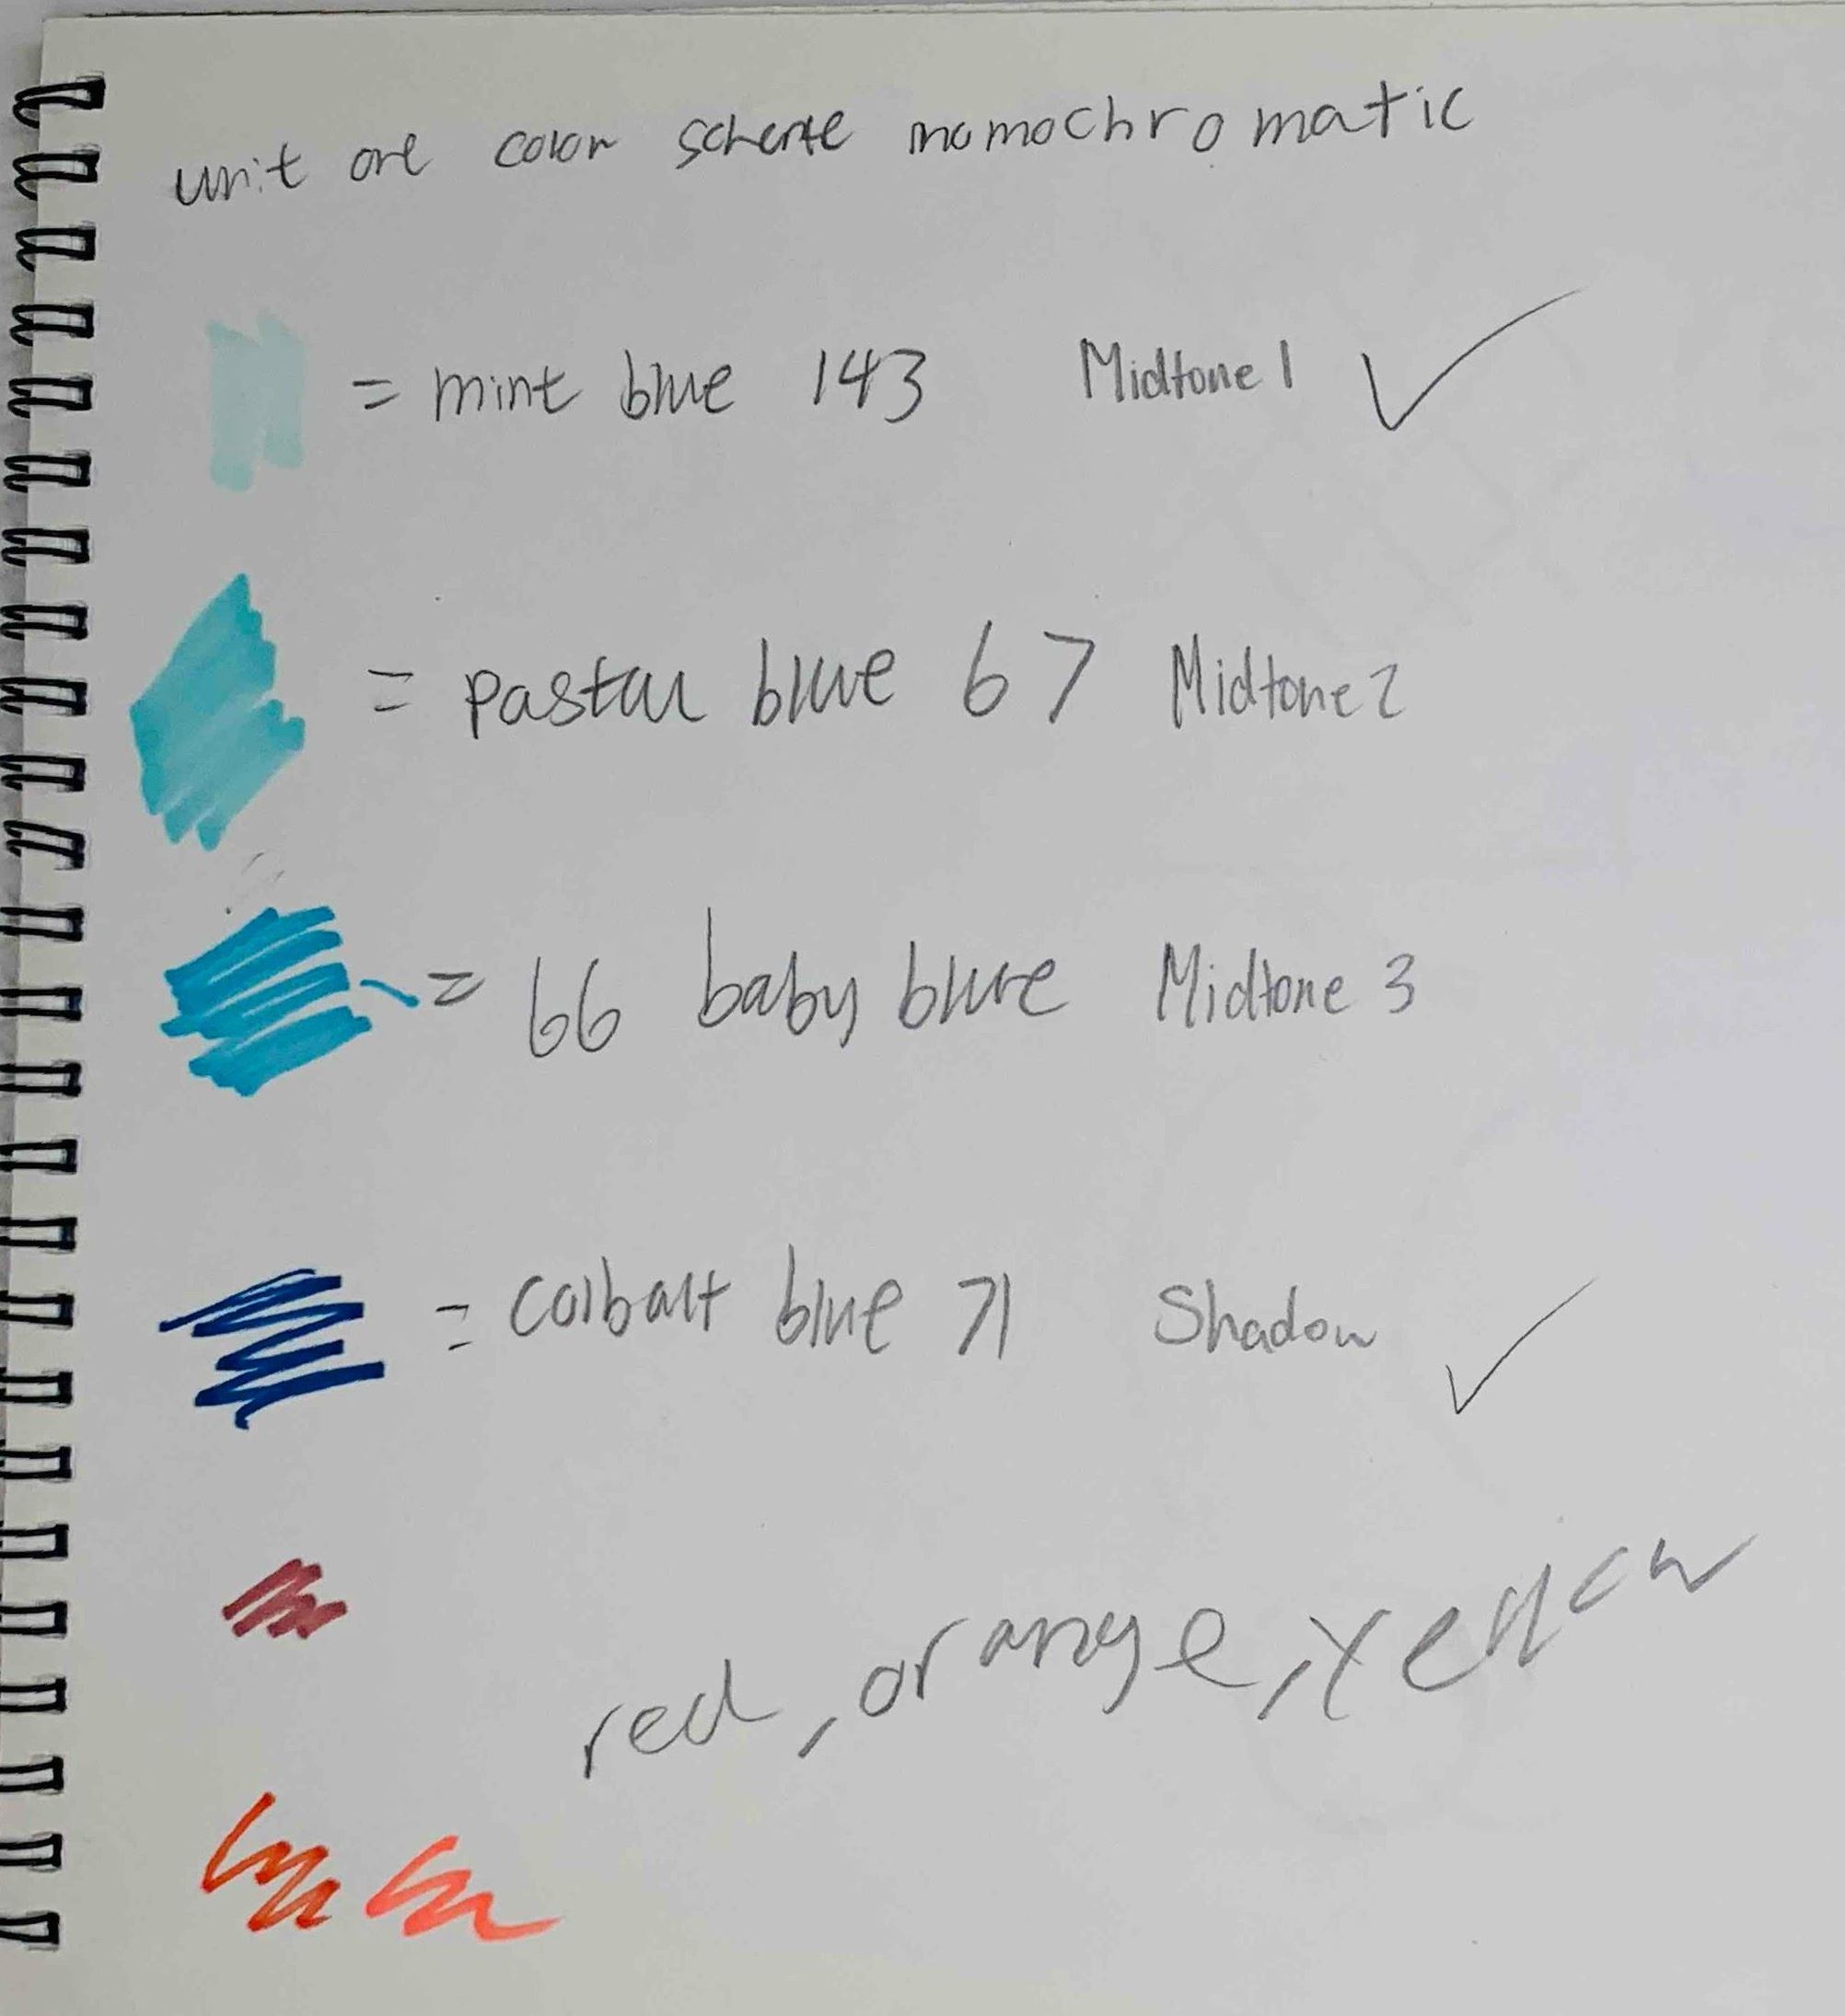 unit one color scheme monochromatic
= mint blue 143 Midtone 1
= pastal blue 67 Midtone 2
= 66 baby blure Midtone 3
= colbalt blue 71 Shadow
red, orange, yellow